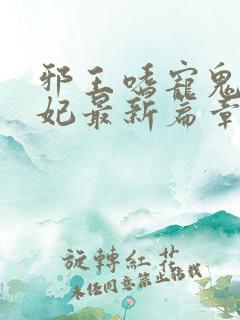 邪王嗜寵鬼
妃最新篇章
旋轉紅花
未經同意禁止轉載